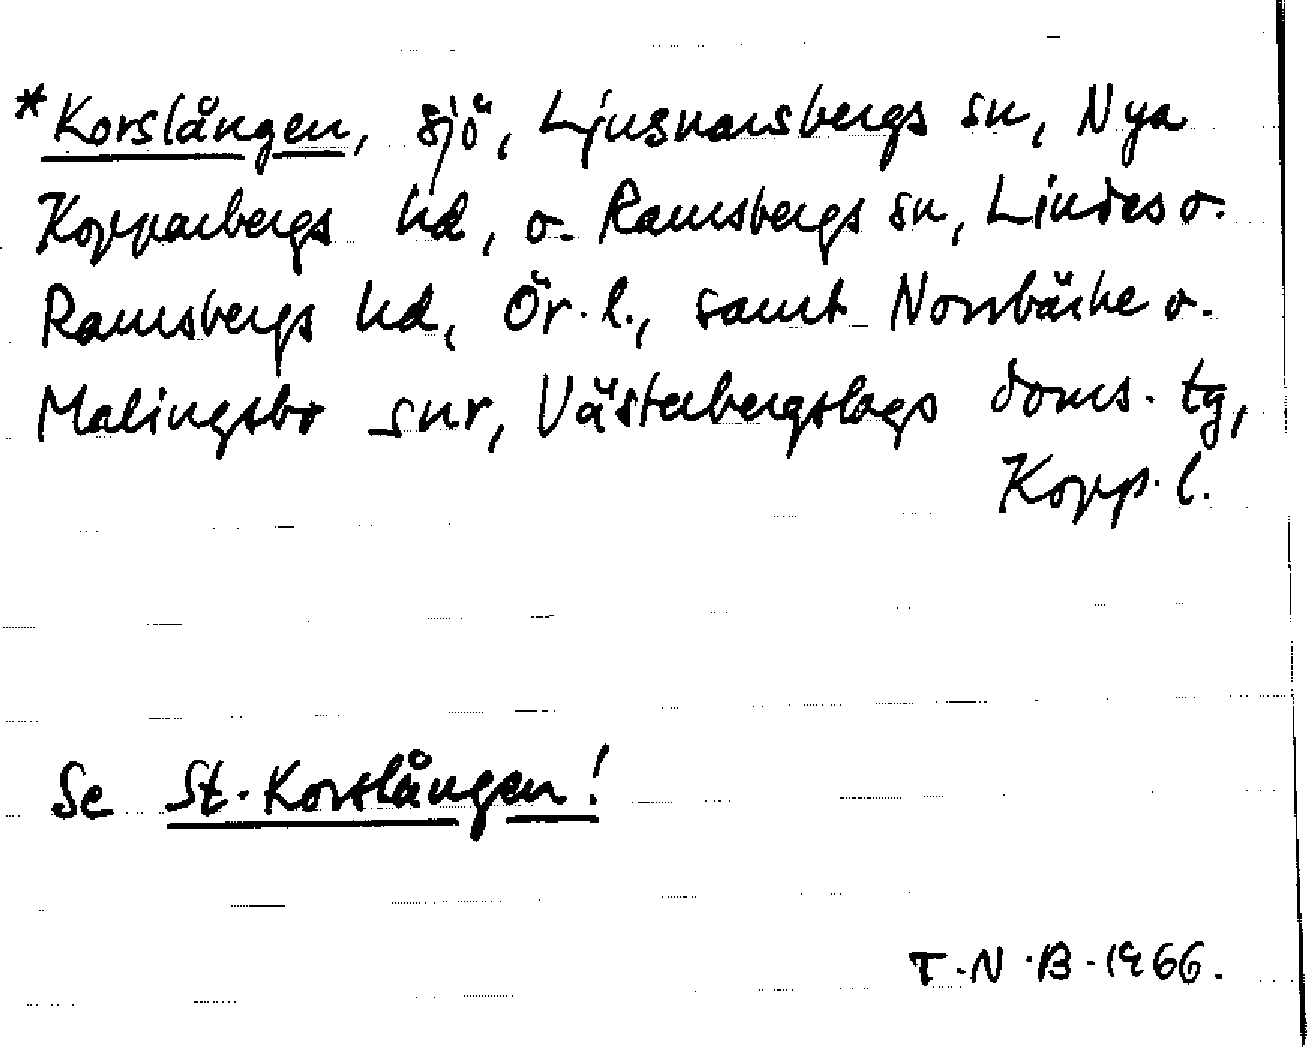 *Korslången, sjö, Ljusnarsbergs sn, Nya
Kopparbergs hd, o. Ramsbergs sn, Lindes o.
Ramsbergs hd, Ör. l., samt Norrbärke o.
Malingsbo snr, Västerbergslags doms. tg,
Kopp. l.
Se St. Korslången!
T.N.B. 1966.